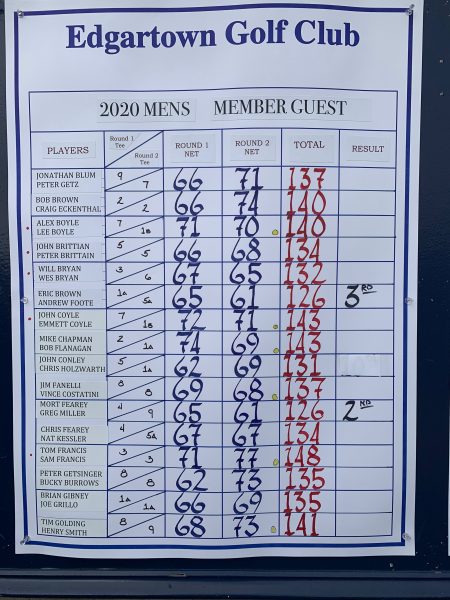 Edgartown Golf Club
2020 MENS MEMBER GUEST
PLAYERS Round 1 Tee Round 2 Tee ROUND 1 NET ROUND 2 NET TOTAL RESULT
JONATHAN BLUM PETER GETZ 9 7 66 71 137
BOB BROWN CRAIG ECKENTHAL 2 2 66 74 140
ALEX BOYLE LEE BOYLE 7 1B 71 70 140
JOHN BRITTIAN PETER BRITTAIN 5 5 66 68 134
WILL BRYAN WES BRYAN 3 6 67 65 132
ERIC BROWN ANDREW FOOTE 1A 5A 65 61 126 3RD
JOHN COYLE EMMETT COYLE 7 1B 72 71 143
MIKE CHAPMAN BOB FLANAGAN 2 1A 74 69 143
JOHN CONLEY CHRIS HOLZWARTH 5 1A 62 69 131
JIM FANELLI VINCE COSTATINI 8 8 69 68 137
MORT FEAREY GREG MILLER 4 9 65 61 126 2ND
CHRIS FEAREY NAT KESSLER 4 5A 67 67 134
TOM FRANCIS SAM FRANCIS 3 3 71 77 148
PETER GETSINGER BUCKY BURROWS 8 8 62 73 135
BRIAN GIBNEY JOE GRILLO 1A 1A 66 69 135
TIM GOLDING HENRY SMITH 8 9 68 73 141